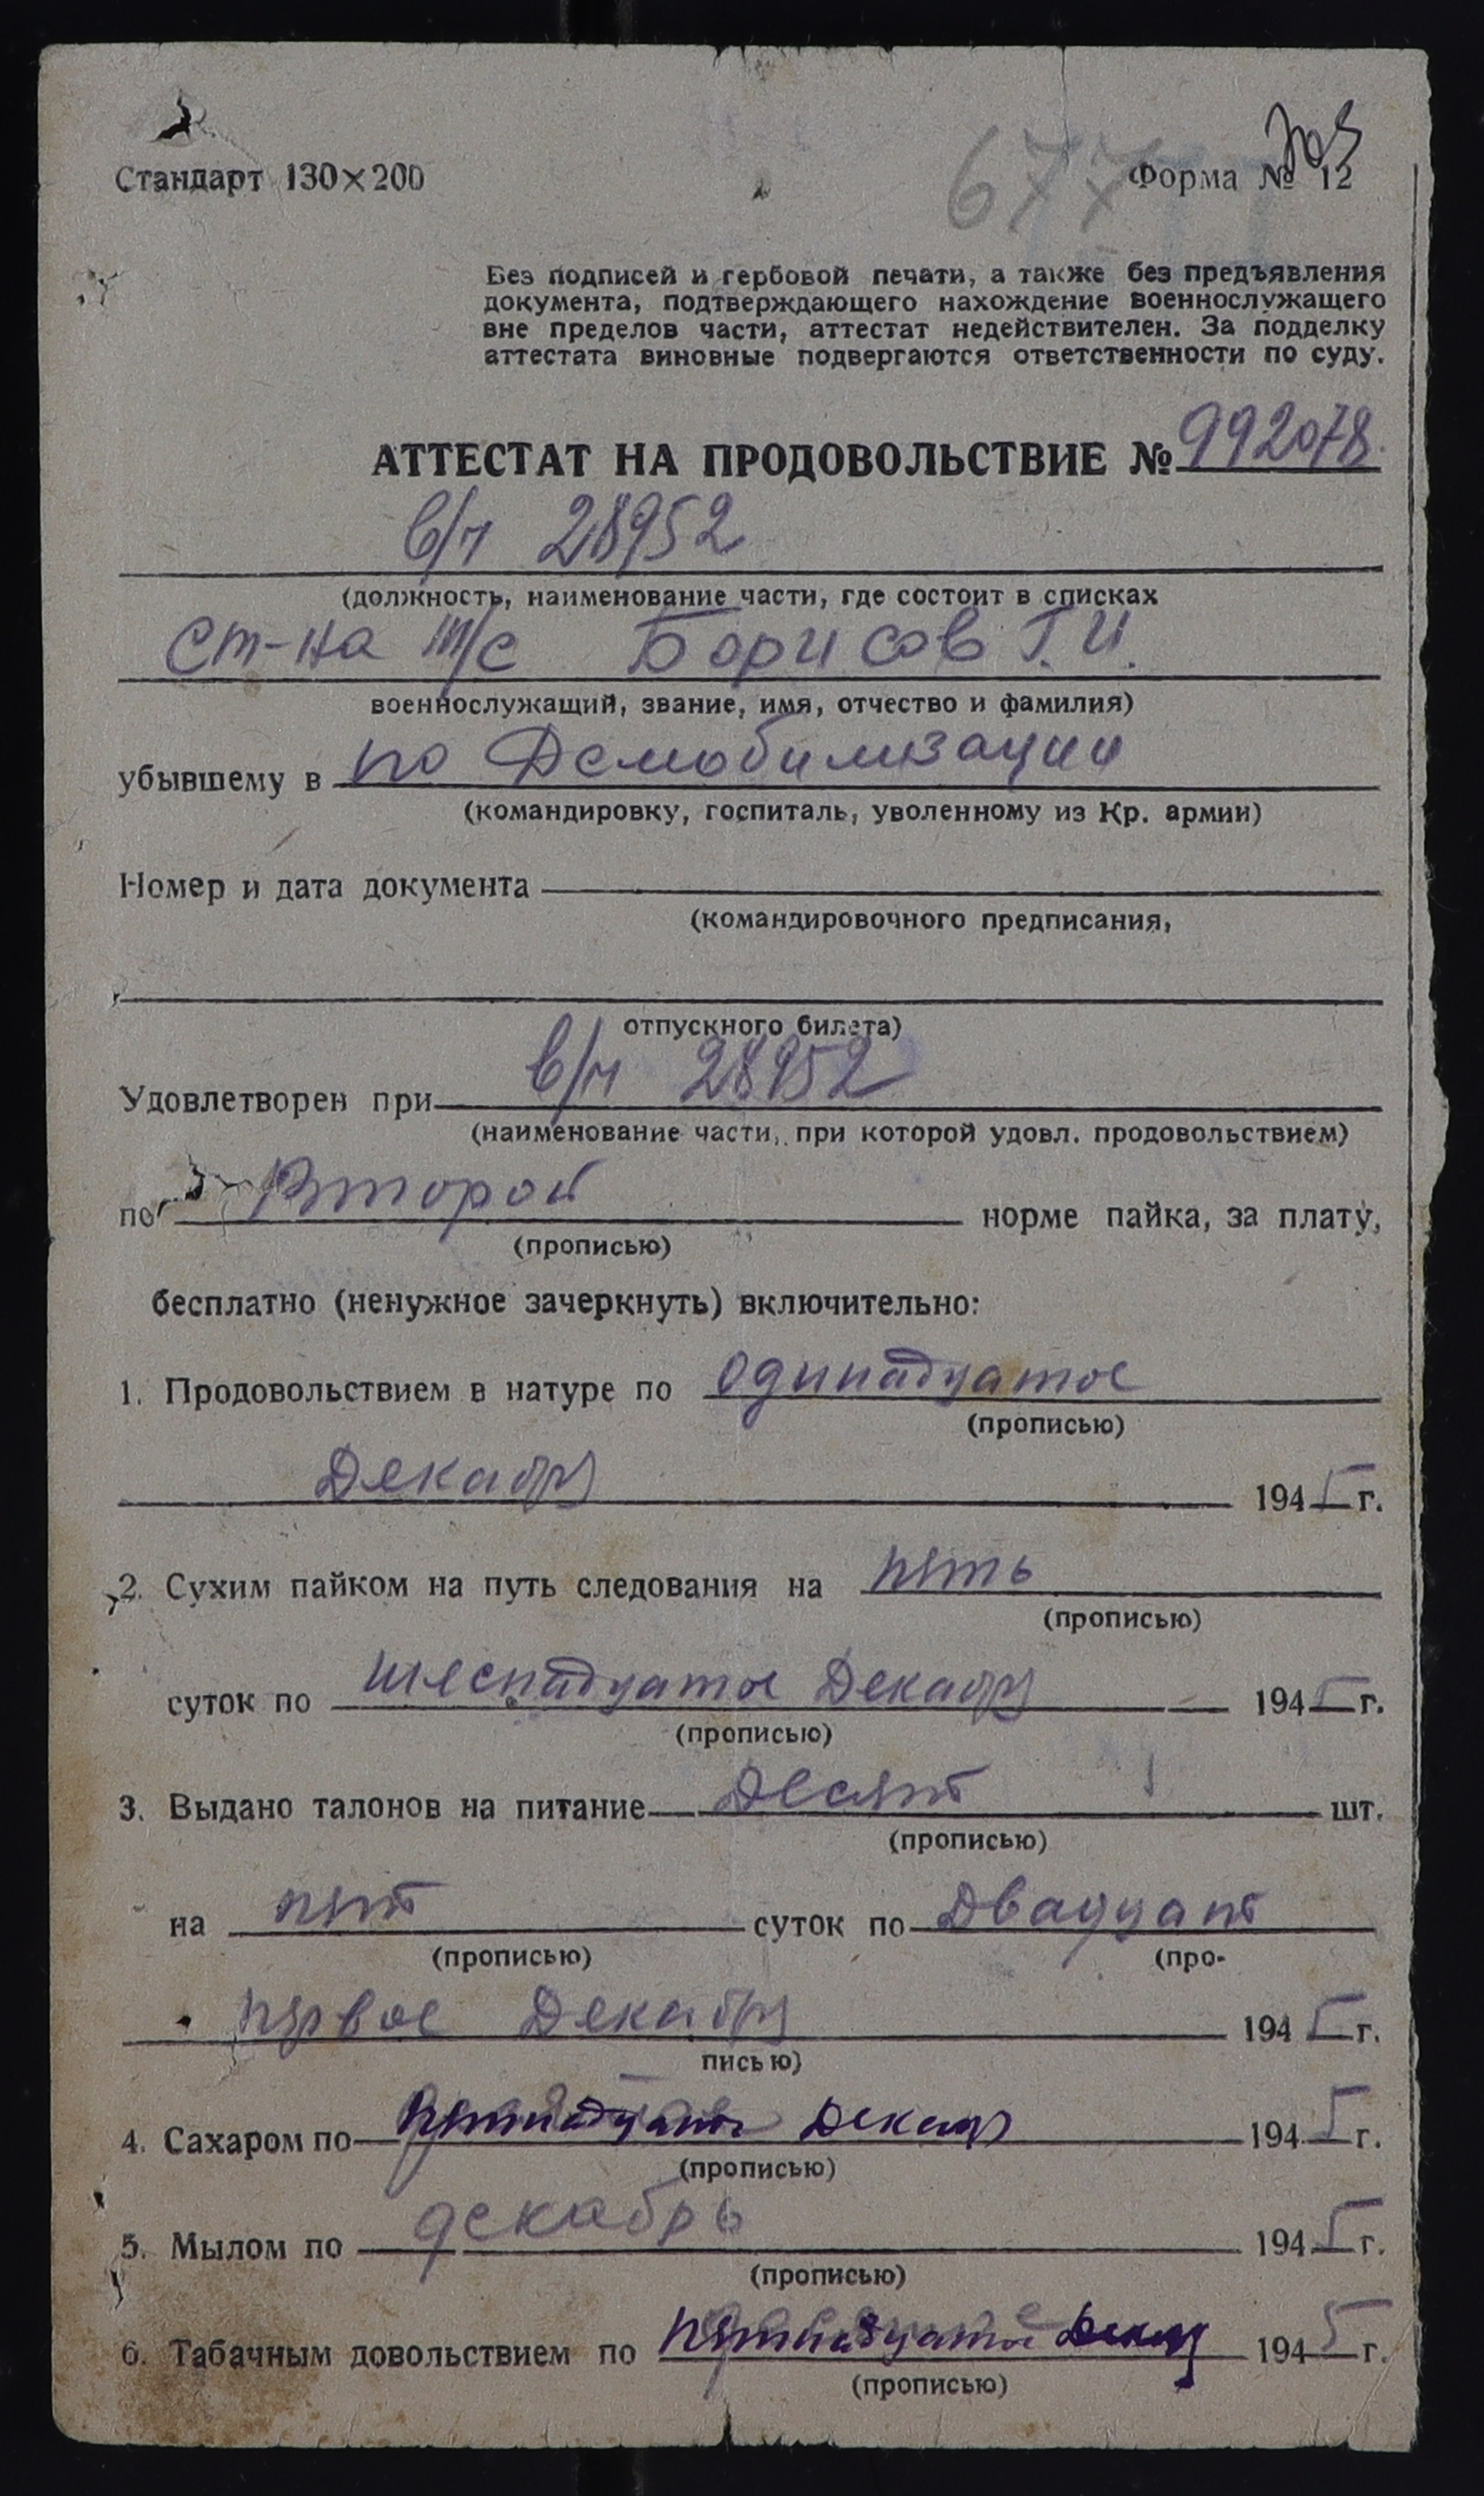 677
Стандарт 130×200 Форма № 12
Без подписей и гербовой печати, а также без предъявления
документа, подтверждающего нахождение военнослужащего
вне пределов части, аттестат недействителен. За подделку
аттестата виновные подвергаются ответственности по суду.
АТТЕСТАТ НА ПРОДОВОЛЬСТВИЕ № 992078
в/ч 28952
(должность, наименование части, где состоит в списках
ст-на т/с Борисов Г.И.
военнослужащий, звание, имя, отчество и фамилия)
убывшему в по Демобилизации
(командировку, госпиталь, уволенному из Кр. армии)
Номер и дата документа
(командировочного предписания,
отпускного билета)
Удовлетворен при в/ч 28952
(наименование части, при которой удовл. продовольствием)
по Второй норме пайка, за плату,
(прописью)
бесплатно (ненужное зачеркнуть) включительно:
1. Продовольствием в натуре по одинадцатое
(прописью)
Декабря 1945 г.
2. Сухим пайком на путь следования на пять
(прописью)
суток по шеснадцатое Декабря 1945 г.
(прописью)
3. Выдано талонов на питание Десять шт.
(прописью)
на пять суток по Двадцать
(прописью) (про-
первое Декабря 1945 г.
писью)
4. Сахаром по пятнадцатое Декабря 1945 г.
(прописью)
5. Мылом по декабрь 1945 г.
(прописью)
6. Табачным довольствием по пятнадцатое Декабря 1945 г.
(прописью)